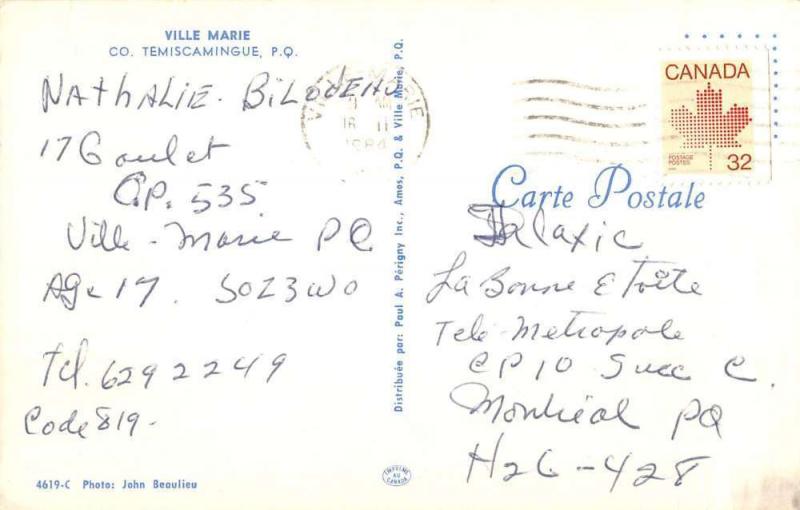 VILLE MARIE
CO. TEMISCAMINGUE, P.Q.
Nathalie. Bilodeau
17 Goulet
C.P. 535
Ville-Marie PQ
Age 17. SOZ3WO
Tel. 629 2249
Code 819.
4619-C Photo: John Beaulieu
Distribuée par: Paul A. Périgny Inc., Amos, P.Q. & Ville Marie, P.Q.
IMPRIMÉ AU CANADA
1984
CANADA
POSTAGE
POSTES
32
Carte Postale
La Bonne Etoile
Tele-Metropole
CP 10 Succ C.
Montréal PQ
H2G-428